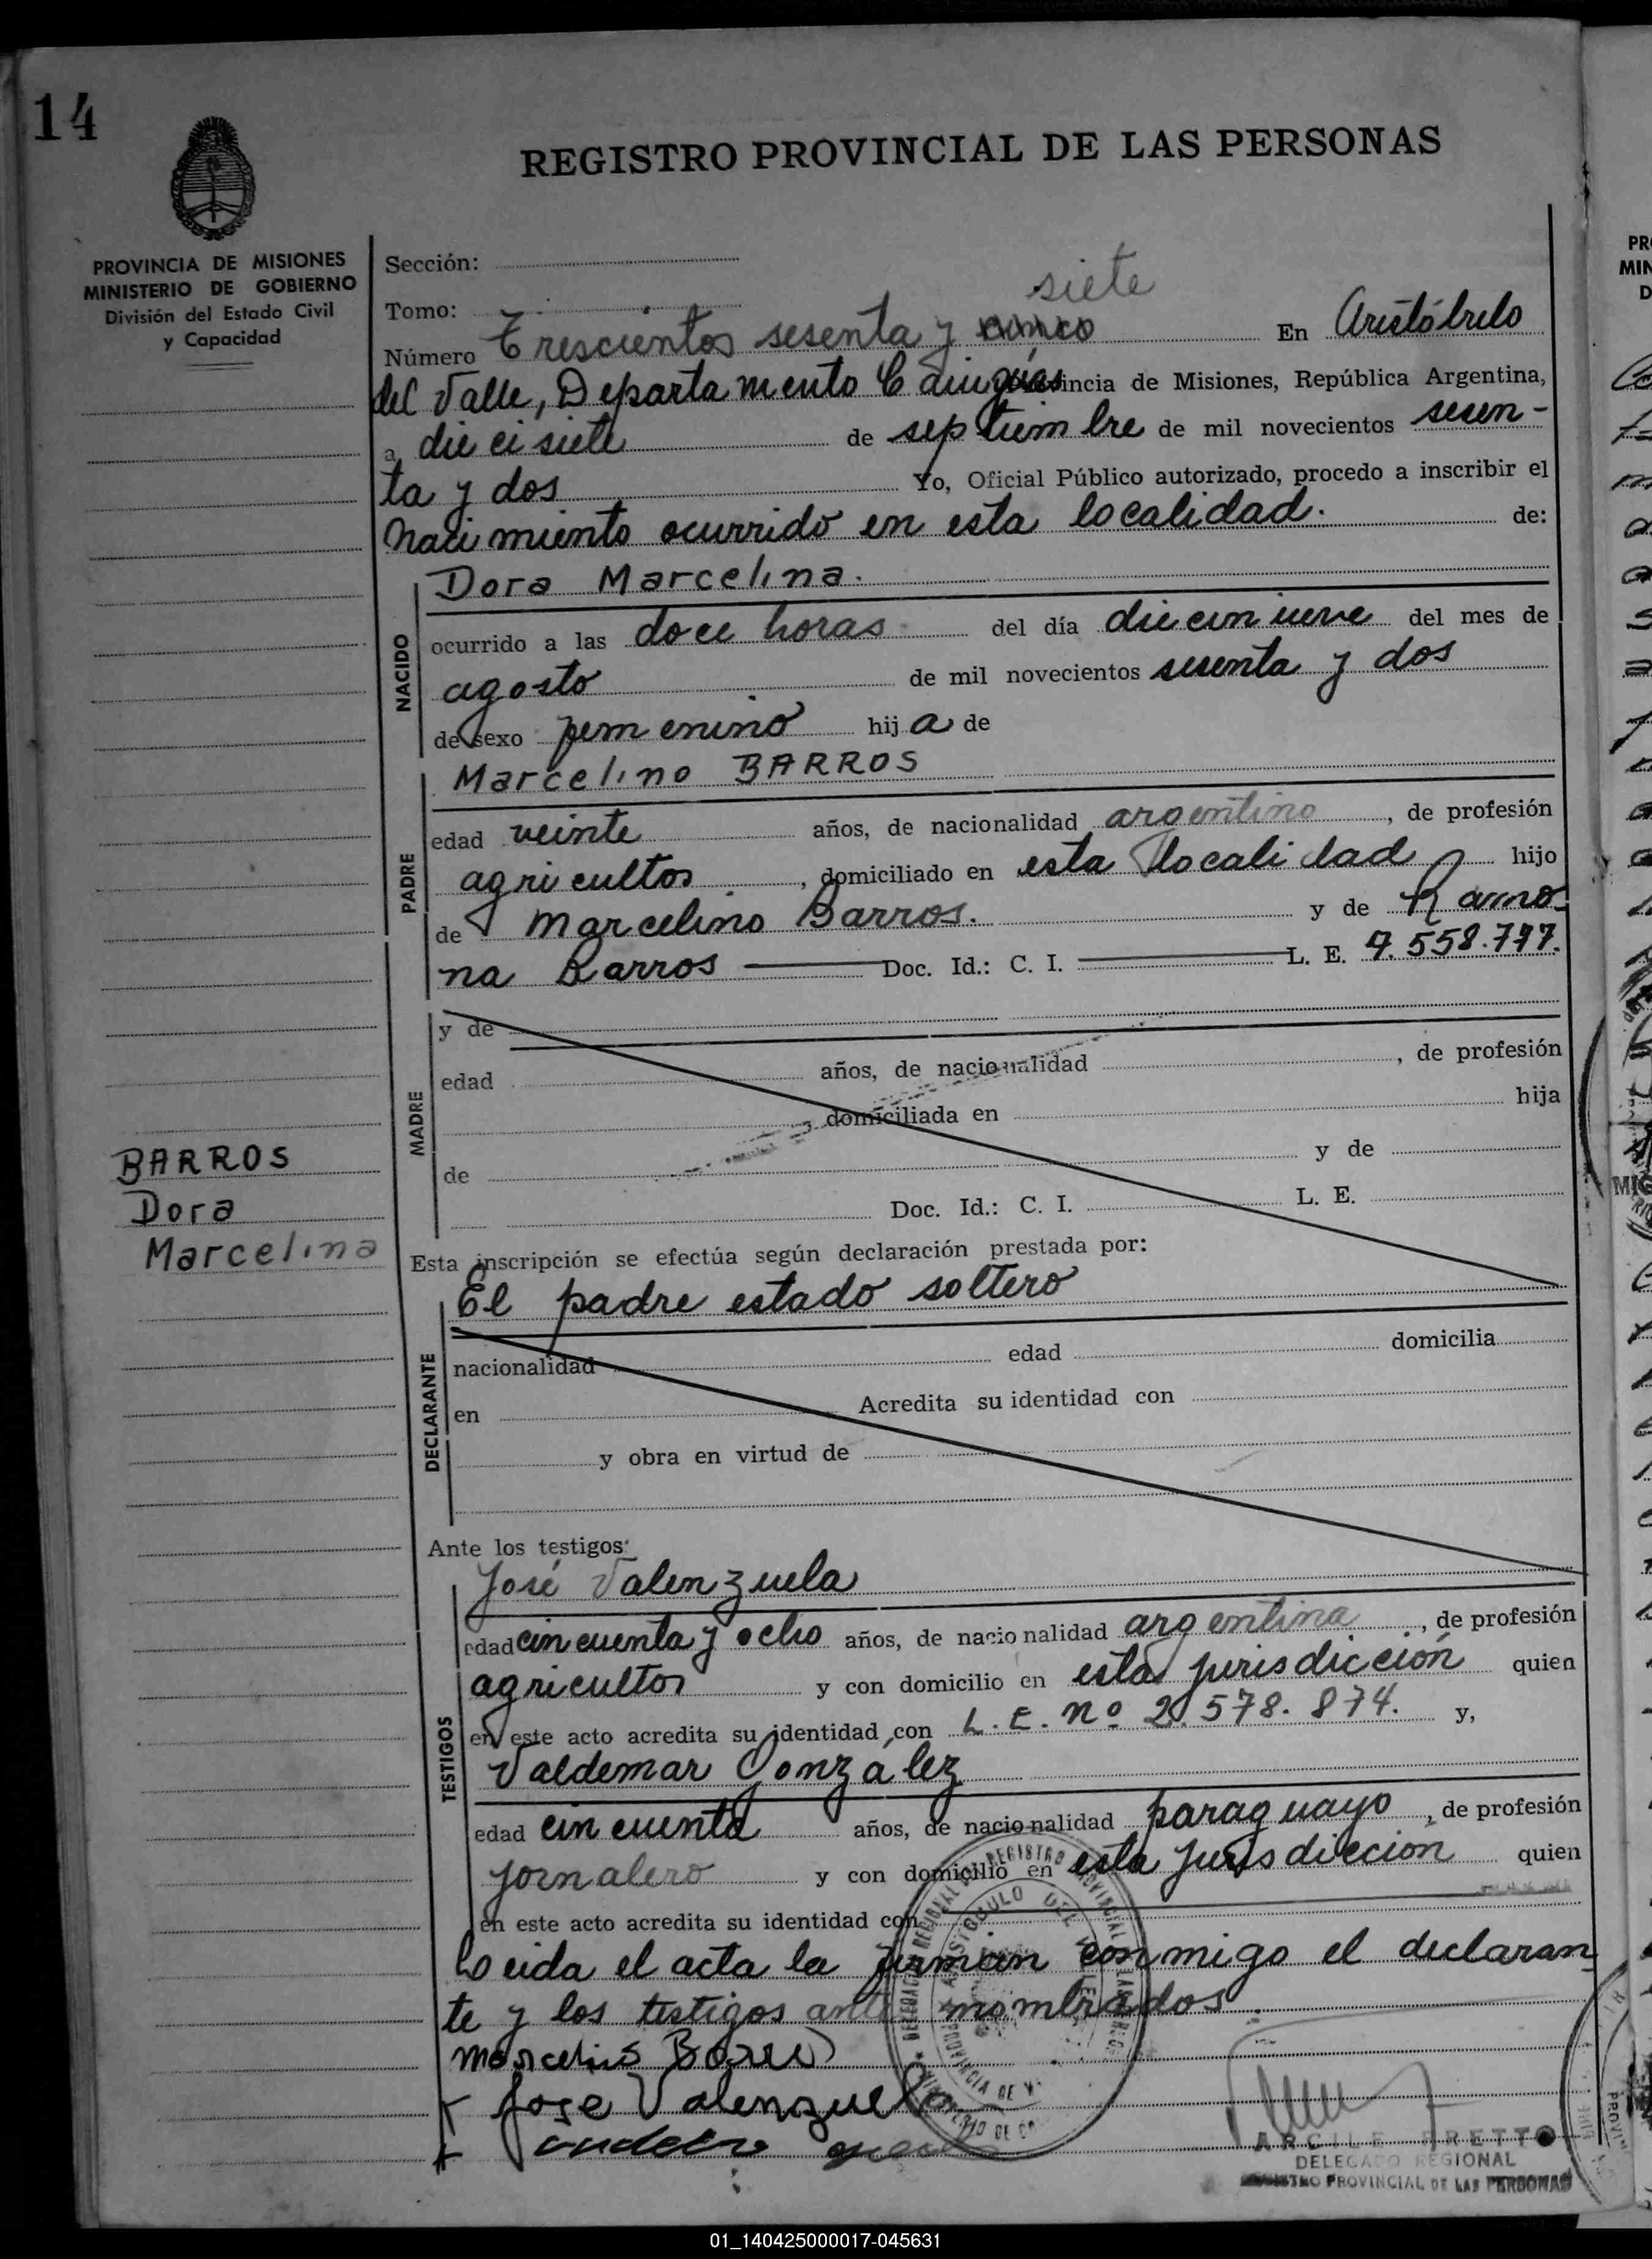 14
REGISTRO PROVINCIAL DE LAS PERSONAS
PROVINCIA DE MISIONES
MINISTERIO DE GOBIERNO
División del Estado Civil
y Capacidad
Sección:
Tomo:
siete
Número Trescientos sesenta y cinco En Aristóbulo
del Valle, Departamento Cainguás Provincia de Misiones, República Argentina,
a dieciseite de septiembre de mil novecientos sesen-
ta y dos Yo, Oficial Público autorizado, procedo a inscribir el
nacimiento ocurrido en esta localidad. de:
NACIDO
Dora Marcelina.
ocurrido a las doce horas del día diecinueve del mes de
agosto de mil novecientos sesenta y dos
de sexo femenino hija de
PADRE
Marcelino BARROS
edad veinte años, de nacionalidad argentino, de profesión
agricultor, domiciliado en esta localidad hijo
de Marcelino Barros. y de Ramo-
na Barros Doc. Id.: C. I. L. E. 7.558.777.
MADRE
y de
edad años, de nacionalidad , de profesión
domiciliada en hija
de y de
Doc. Id.: C. I. L. E.
BARROS
Dora
Marcelina
Esta inscripción se efectúa según declaración prestada por:
DECLARANTE
El padre estado soltero
nacionalidad edad domicilia
en Acredita su identidad con
y obra en virtud de
Ante los testigos:
TESTIGOS
José Valenzuela
edad cincuenta y ocho años, de nacionalidad argentina, de profesión
agricultor y con domicilio en esta jurisdicción quien
en este acto acredita su identidad con L. E. Nº 2.578.874. y,
Valdemar González
edad cincuenta años, de nacionalidad paraguayo, de profesión
jornalero y con domicilio en esta jurisdicción quien
en este acto acredita su identidad con
Leida el acta la firman conmigo el declaran
te y los testigos ante nombrados
Jose Valenzuela
DELEGADO REGIONAL
REGISTRO PROVINCIAL DE LAS PERSONAS
01_140425000017-045631